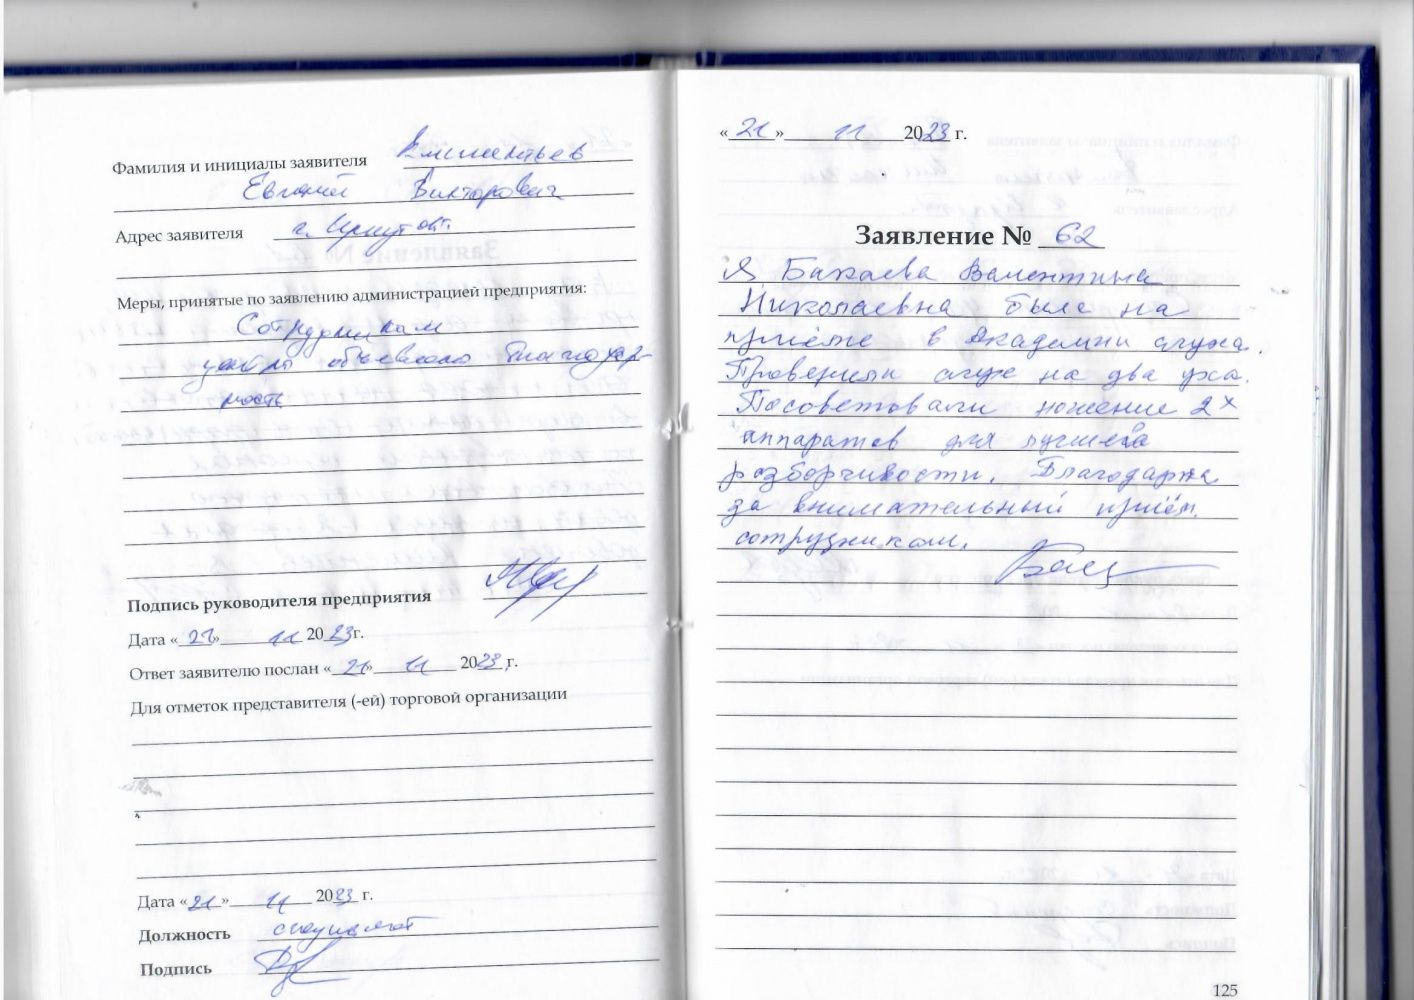 Фамилия и инициалы заявителя Климентьев
Евгений Викторович
Адрес заявителя г. Иркутск.
Меры, принятые по заявлению администрацией предприятия:
Сотрудникам
центра объявлена благодар-
ность
Подпись руководителя предприятия
Дата «21» 11 2023г.
Ответ заявителю послан «21» 11 2023 г.
Для отметок представителя (-ей) торговой организации
Дата «21» 11 2023 г.
Должность специалист
Подпись
«21» 11 2023 г.
Заявление № 62
Я Бакаева Валентина
Николаевна была на
приёме в Академии слуха.
Проверили слух на два уха.
Посоветовали ношение 2х
аппаратов для лучшего
разборчивости. Благодарна
за внимательный приём
сотрудникам.
125